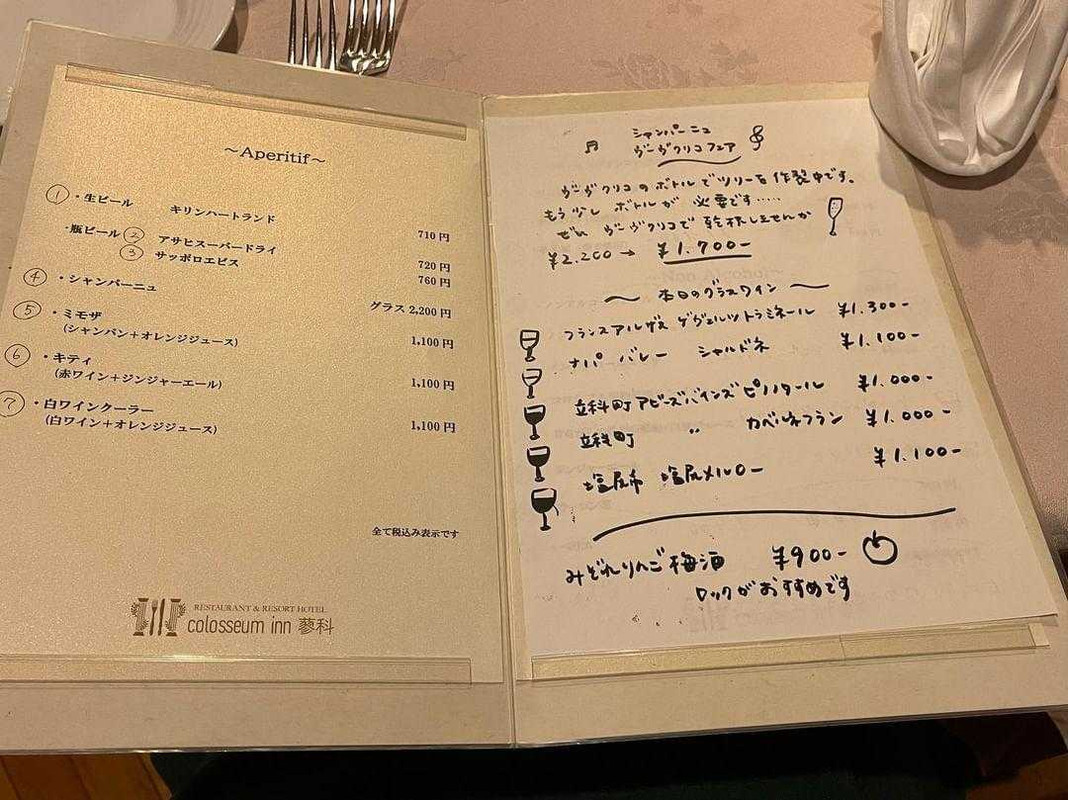 ~Aperitif~
① ・生ビール キリンハートランド 710円
・瓶ビール ② アサヒスーパードライ 720円
③ サッポロエビス 760円
④ ・シャンパーニュ グラス 2,200円
⑤ ・ミモザ
(シャンパン+オレンジジュース) 1,100円
⑥ ・キティ
(赤ワイン+ジンジャーエール) 1,100円
⑦ ・白ワインクーラー
(白ワイン+オレンジジュース) 1,100円
全て税込み表示です
RESTAURANT & RESORT HOTEL
colosseum inn 蓼科
シャンパーニュ
ヴーヴクリコフェア
ヴーヴクリコのボトルでツリーを作製中です。
もう少しボトルが必要です‥‥‥
ぜひヴーヴクリコで乾杯しませんか
¥2.200 → ¥1.700-
~ 本日のグラスワイン ~
フランスアルザス ゲヴェルツトラミネール ¥1.300-
ナパ バレー シャルドネ ¥1.100-
立科町アビーズバインズ ピノノワール ¥1.000-
立科町 〃 カベルネフラン ¥1.000-
塩尻市 塩尻メルロー ¥1.100-
みぞれりんご梅酒 ¥900-
ロックがおすすめです